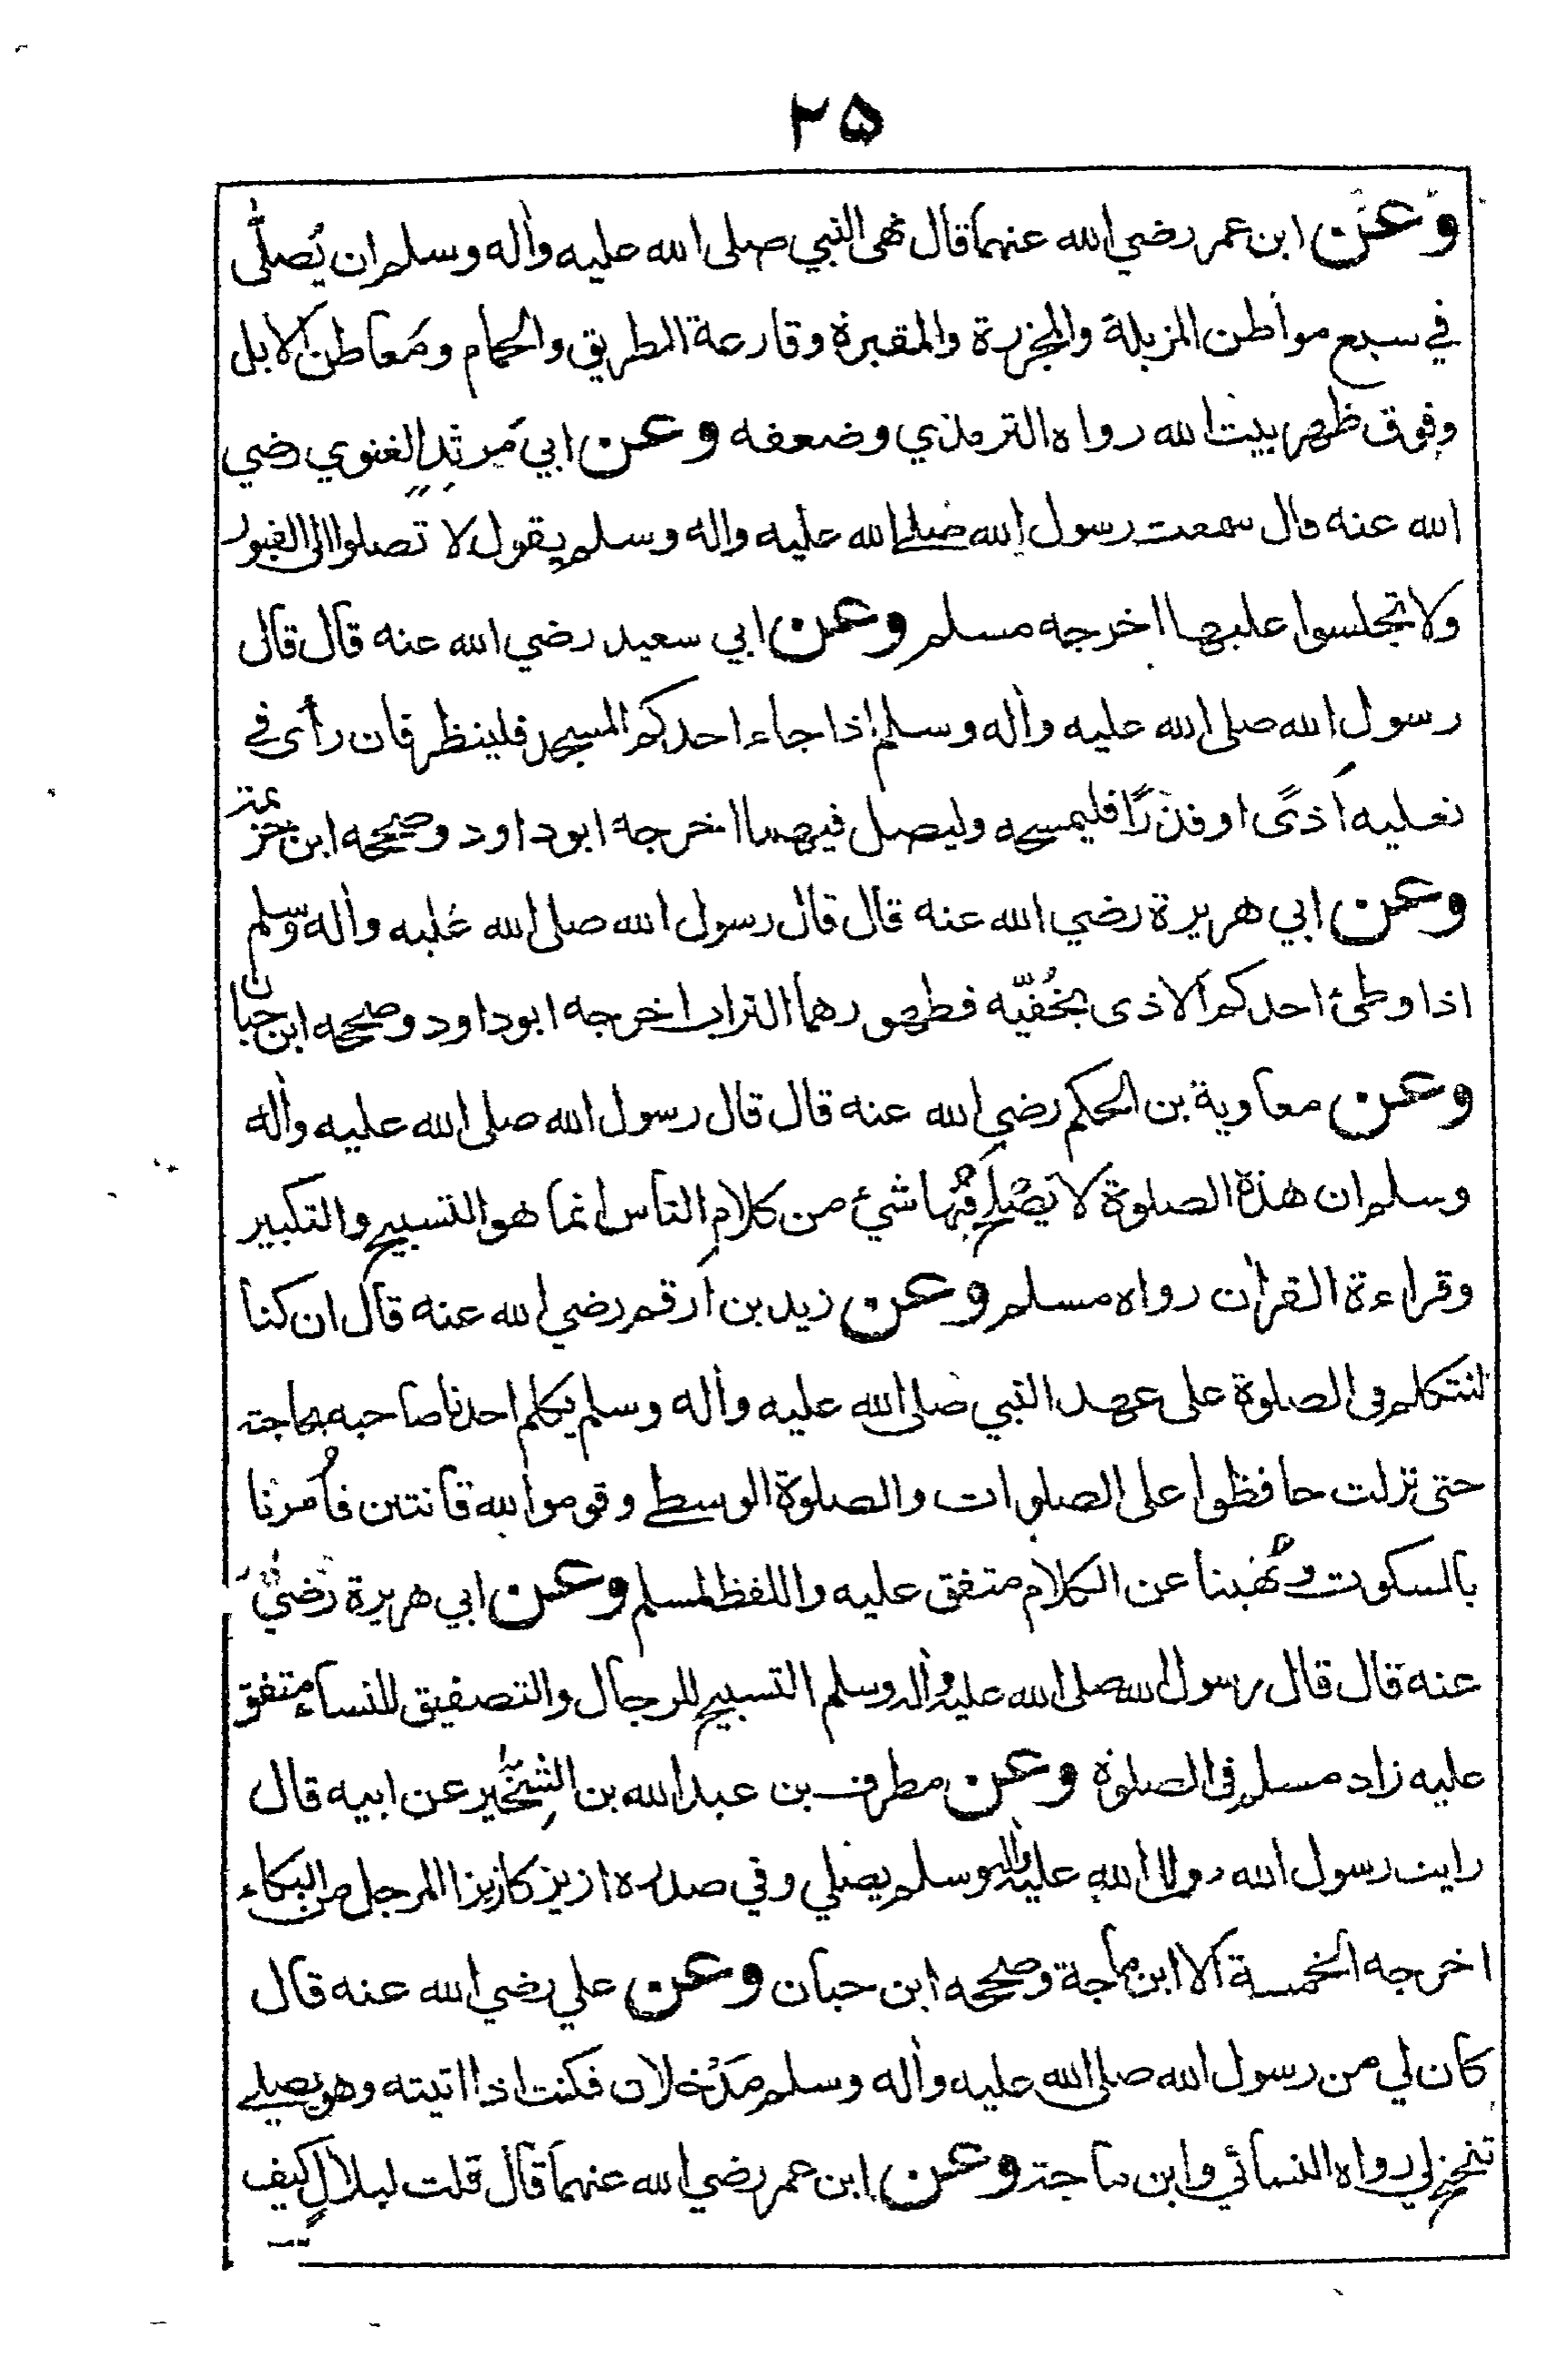 ٢٥
وعن ابن عمر رضي الله عنهما قال نهى النبي صلى الله عليه واٰله وسلم ان يُصلّٰى
في سبع مواطن المزبلة والمجزرة والمقبرة وقارعة الطريق والحمام ومَعاطن الابل
وفوق ظهر بيت الله رواه الترمذي وضعفه وعن ابي مَرثدٍ الغنوي رضي
الله عنه قال سمعت رسول الله صلى الله عليه واله وسلم يقول لا تصلوا الى القبور
ولا تجلسوا عليها اخرجه مسلم وعن ابي سعيد رضي الله عنه قال قال
رسول الله صلى الله عليه واٰله وسلم اذا جاء احدكم المسجد فلينظر فان رأى في
نعليه اَذىً او قذرًا فليمسحه وليصل فيهما اخرجه ابوداود وصححه ابن خزيمة
وعن ابي هريرة رضي الله عنه قال قال رسول الله صلى الله عليه واٰله وسلم
اذا وطئ احدكم الاذى بخُفيّه فطهورهما التراب اخرجه ابوداود وصححه ابن حبان
وعن معاوية بن الحكم رضي الله عنه قال قال رسول الله صلى الله عليه واٰله
وسلم ان هذه الصلوة لا يَصْلُح فيها شئ من كلام الناس انما هو التسبيح والتكبير
وقراءة القراٰن رواه مسلم وعن زيد بن ارقم رضي الله عنه قال ان كنا
لنتكلم في الصلوة على عهد النبي صلى الله عليه واٰله وسلم يكلم احدنا صاحبه بحاجته
حتى نزلت حافظوا على الصلوات والصلوة الوسطى وقوموا لله قانتين فاُمرنا
بالسكوت ونُهينا عن الكلام متفق عليه واللفظ لمسلم وعن ابي هريرة رضي الله
عنه قال قال رسول الله صلى الله عليه واٰله وسلم التسبيح للرجال والتصفيق للنساء متفق
عليه زاد مسلم في الصلوة وعن مطرف بن عبدالله بن الشِّخِّير عن ابيه قال
رايت رسول الله صلى الله عليه واٰله وسلم يصلي وفي صدره ازيز كازيز المرجل من البكاء
اخرجه الخمسة الا ابن ماجة وصححه ابن حبان وعن علي رضي الله عنه قال
كان لي من رسول الله صلى الله عليه واٰله وسلم مَدْخلان فكنت اذا اتيته وهو يصلي
تنحنح لي رواه النسائي وابن ماجة وعن ابن عمر رضي الله عنهما قال قلت لبلالٍ كيف